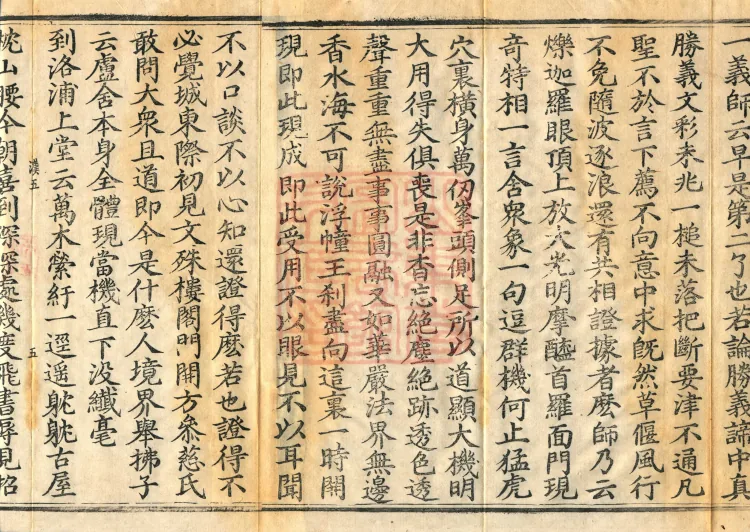 一義師云早是第二了也若論勝義諦中真
勝義文彩未兆一槌未落把斷要津不通凡
聖不於言下薦不向意中求旣然草偃風行
不免隨波逐浪還有共相證據者麽師乃云
爍迦羅眼頂上放大光明摩醯首羅面門現
竒特相一言含衆象一句逗群機何止猛虎
穴裏橫身萬仞峯頭側足所以道顯大機明
大用得失俱喪是非杳忘絶塵絶跡透色透
聲重重無盡事事圓融又如華嚴法界無邊
香水海不可說浮幢王刹盡向這裏一時開
現即此現成即此受用不以眼見不以耳聞
不以口談不以心知還證得麽若也證得不
必覺城東際初見文殊樓閣門開方叅慈氏
敢問大衆且道即今是什麽人境界舉拂子
云盧舍本身全體現當機直下没纎毫
到洛浦上堂云萬木縈紆一逕遥躭躭古屋
枕山腰今朝喜到深深處幾度飛書辱見招
漢五
五